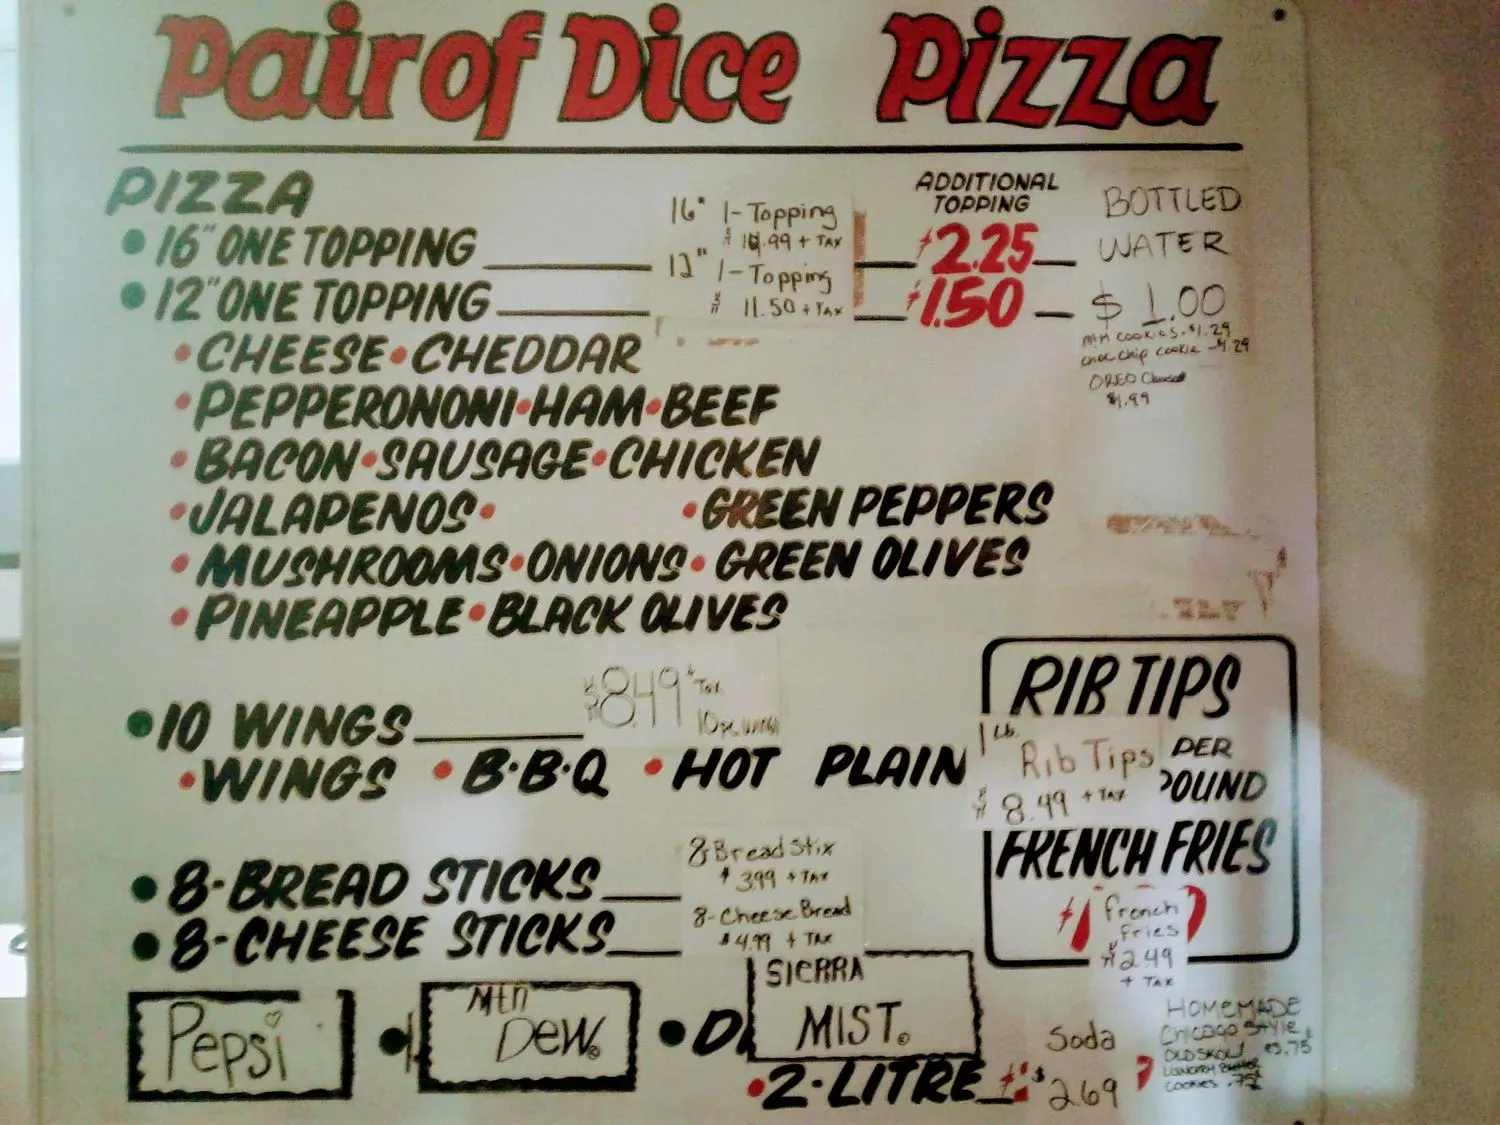 Pair of Dice Pizza
PIZZA
ADDITIONAL
TOPPING
16" ONE TOPPING
16" 1-Topping
+ TAX
$2.25
12" ONE TOPPING
12" 1-Topping
$ 11.50 + TAX
$1.50
BOTTLED
WATER
$ 1.00
cookies - $1.29
choc chip cookie - $1.29
OREO
$1.99
• CHEESE • CHEDDAR
• PEPPERONONI • HAM • BEEF
• BACON • SAUSAGE • CHICKEN
• JALAPENOS • • GREEN PEPPERS
• MUSHROOMS • ONIONS • GREEN OLIVES
• PINEAPPLE • BLACK OLIVES
• 10 WINGS
$8.49 + Tax
10 pc wings
• WINGS • B·B·Q • HOT PLAIN
RIB TIPS
1 Lb.
Rib Tips
$ 8.49 + TAX
PER
POUND
FRENCH FRIES
French
Fries
$2.49
+ TAX
• 8-BREAD STICKS
8 Bread Stix
$ 3.99 + TAX
• 8-CHEESE STICKS
8-Cheese Bread
$4.99 + TAX
Pepsi
Mtn
Dew
SIERRA
MIST
• 2-LITRE
Soda
$2.69
HOMEMADE
Chicago STYLE
OLD SKOOL
COOKIES